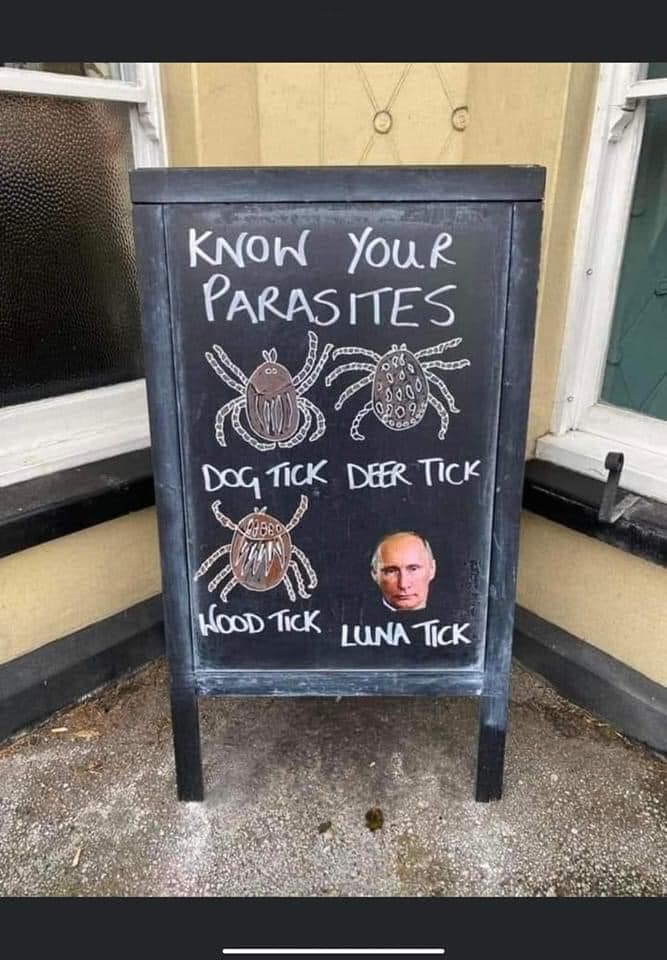 KNOW YOUR
PARASITES
DOG TICK DEER TICK
WOOD TICK LUNA TICK